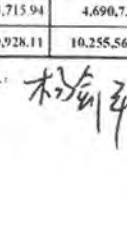 ,715.94 4,690,7
,928.11 10,255,56
杨剑